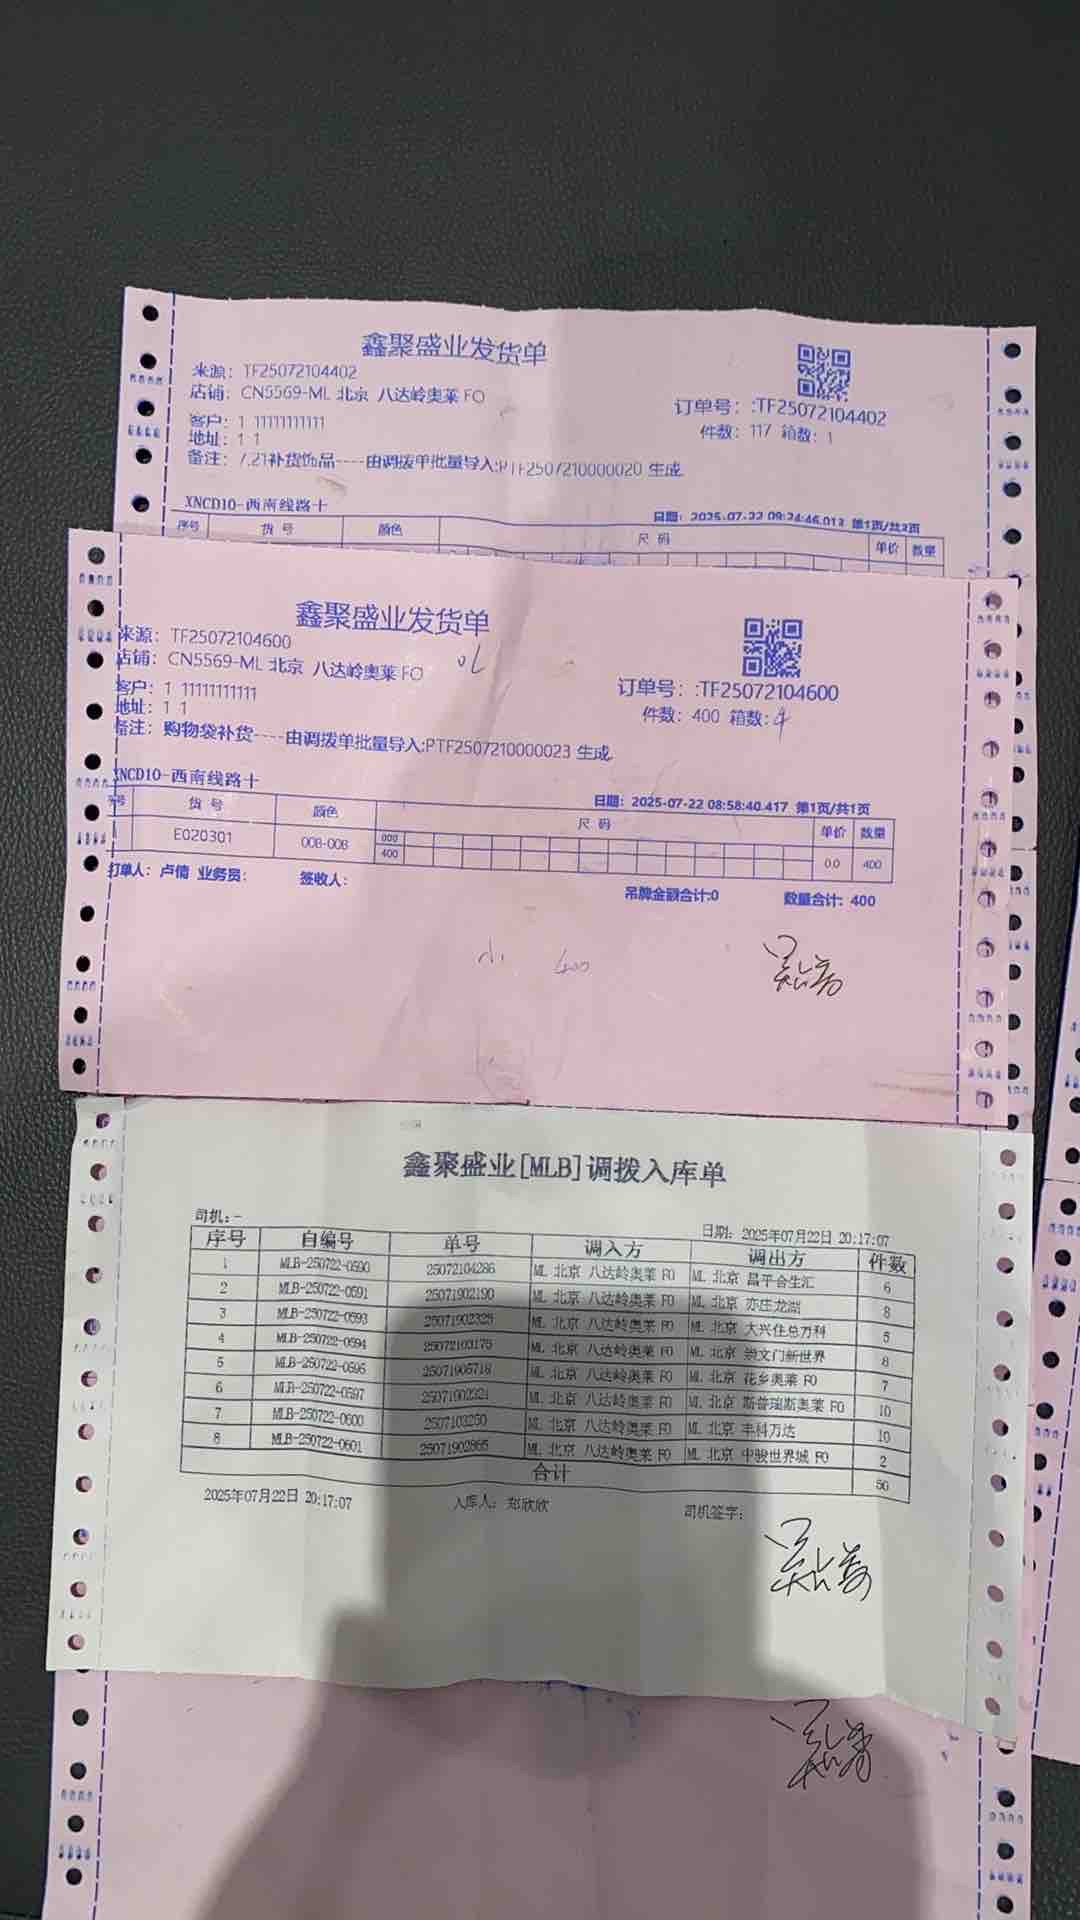 鑫聚盛业发货单
来源：TF25072104402
店铺：CN5569-ML 北京 八达岭奥莱 FO
订单号：:TF25072104402
客户：1 11111111111
件数：117 箱数：1
地址：1 1
备注：7.21补货饰品----由调拨单批量导入:PTF2507210000020 生成.
XNCD10-西南线路十
日期：2025-07-22 09:24:46.013 第1页/共3页
序号 货 号 颜色 尺 码 单价 数量
鑫聚盛业发货单
来源：TF25072104600
店铺：CN5569-ML 北京 八达岭奥莱 FO
订单号：:TF25072104600
客户：1 11111111111
件数：400 箱数：4
地址：1 1
备注：购物袋补货----由调拨单批量导入:PTF2507210000023 生成.
XNCD10-西南线路十
日期：2025-07-22 08:58:40.417 第1页/共1页
序号 货 号 颜色 尺 码 单价 数量
E020301 008-008 000 400 0.0 400
打单人：卢倩 业务员： 签收人：
吊牌金额合计:0 数量合计：400
小 400
鑫聚盛业[MLB]调拨入库单
司机：-
日期：2025年07月22日 20:17:07
序号 自编号 单号 调入方 调出方 件数
1 MLB-250722-0590 25072104286 ML 北京 八达岭奥莱 FO ML 北京 昌平合生汇 6
2 MLB-250722-0591 25071902190 ML 北京 八达岭奥莱 FO ML 北京 亦庄龙湖 8
3 MLB-250722-0593 25071902325 ML 北京 八达岭奥莱 FO ML 北京 大兴住总万科 5
4 MLB-250722-0594 25072103175 ML 北京 八达岭奥莱 FO ML 北京 崇文门新世界 8
5 MLB-250722-0595 25071905718 ML 北京 八达岭奥莱 FO ML 北京 花乡奥莱 FO 7
6 MLB-250722-0597 25071902321 ML 北京 八达岭奥莱 FO ML 北京 斯普瑞斯奥莱 FO 10
7 MLB-250722-0600 2507103250 ML 北京 八达岭奥莱 FO ML 北京 丰科万达 10
8 MLB-250722-0601 25071902865 ML 北京 八达岭奥莱 FO ML 北京 中骏世界城 FO 2
合计 50
2025年07月22日 20:17:07 入库人：郑欣欣 司机签字：